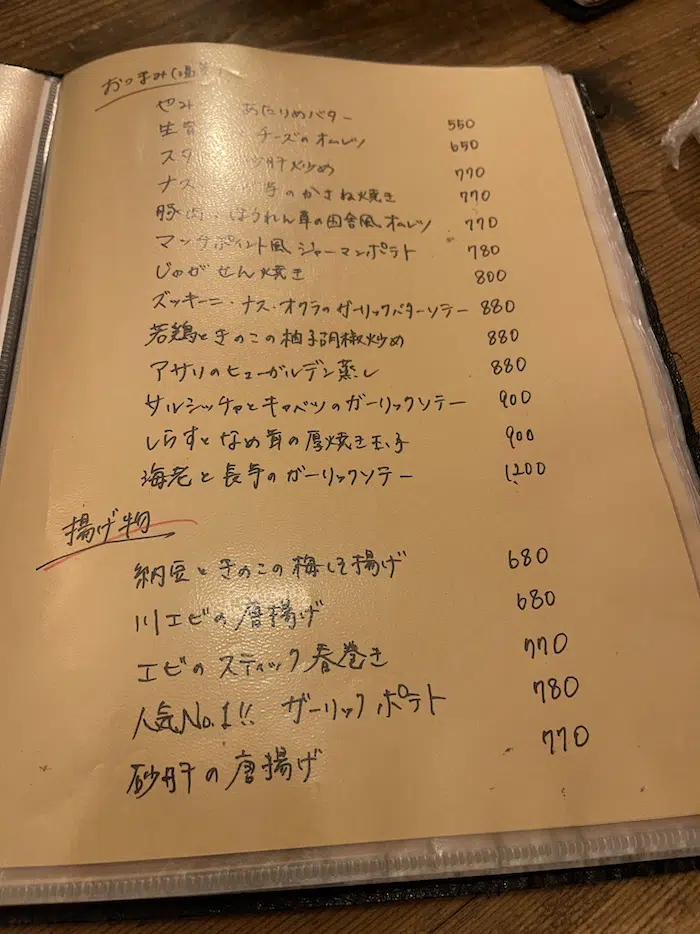 おつまみ(温菜)
やみ あたりめバター 550
生 チーズのオムレツ 650
スタ 砂肝炒め 770
ナス のかさね焼き 770
豚肉 ほうれん草の田舎風オムレツ 770
マンチポイント風ジャーマンポテト 780
じゃがせん焼き 800
ズッキーニ・ナス・オクラのガーリックバターソテー 880
若鶏ときのこの柚子胡椒炒め 880
アサリのヒューガルデン蒸し 880
サルシッチャとキャベツのガーリックソテー 900
しらすとなめ茸の厚焼き玉子 900
海老と長芋のガーリックソテー 1200
揚げ物
納豆ときのこの梅しそ揚げ 680
川エビの唐揚げ 680
エビのスティック春巻き 770
人気No.1!! ガーリックポテト 780
砂肝の唐揚げ 770